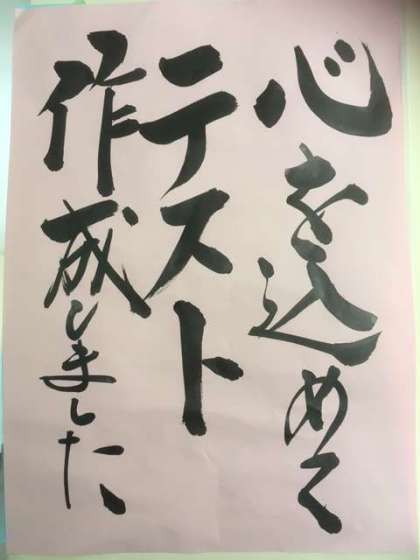 心を込めて
テスト
作成しました